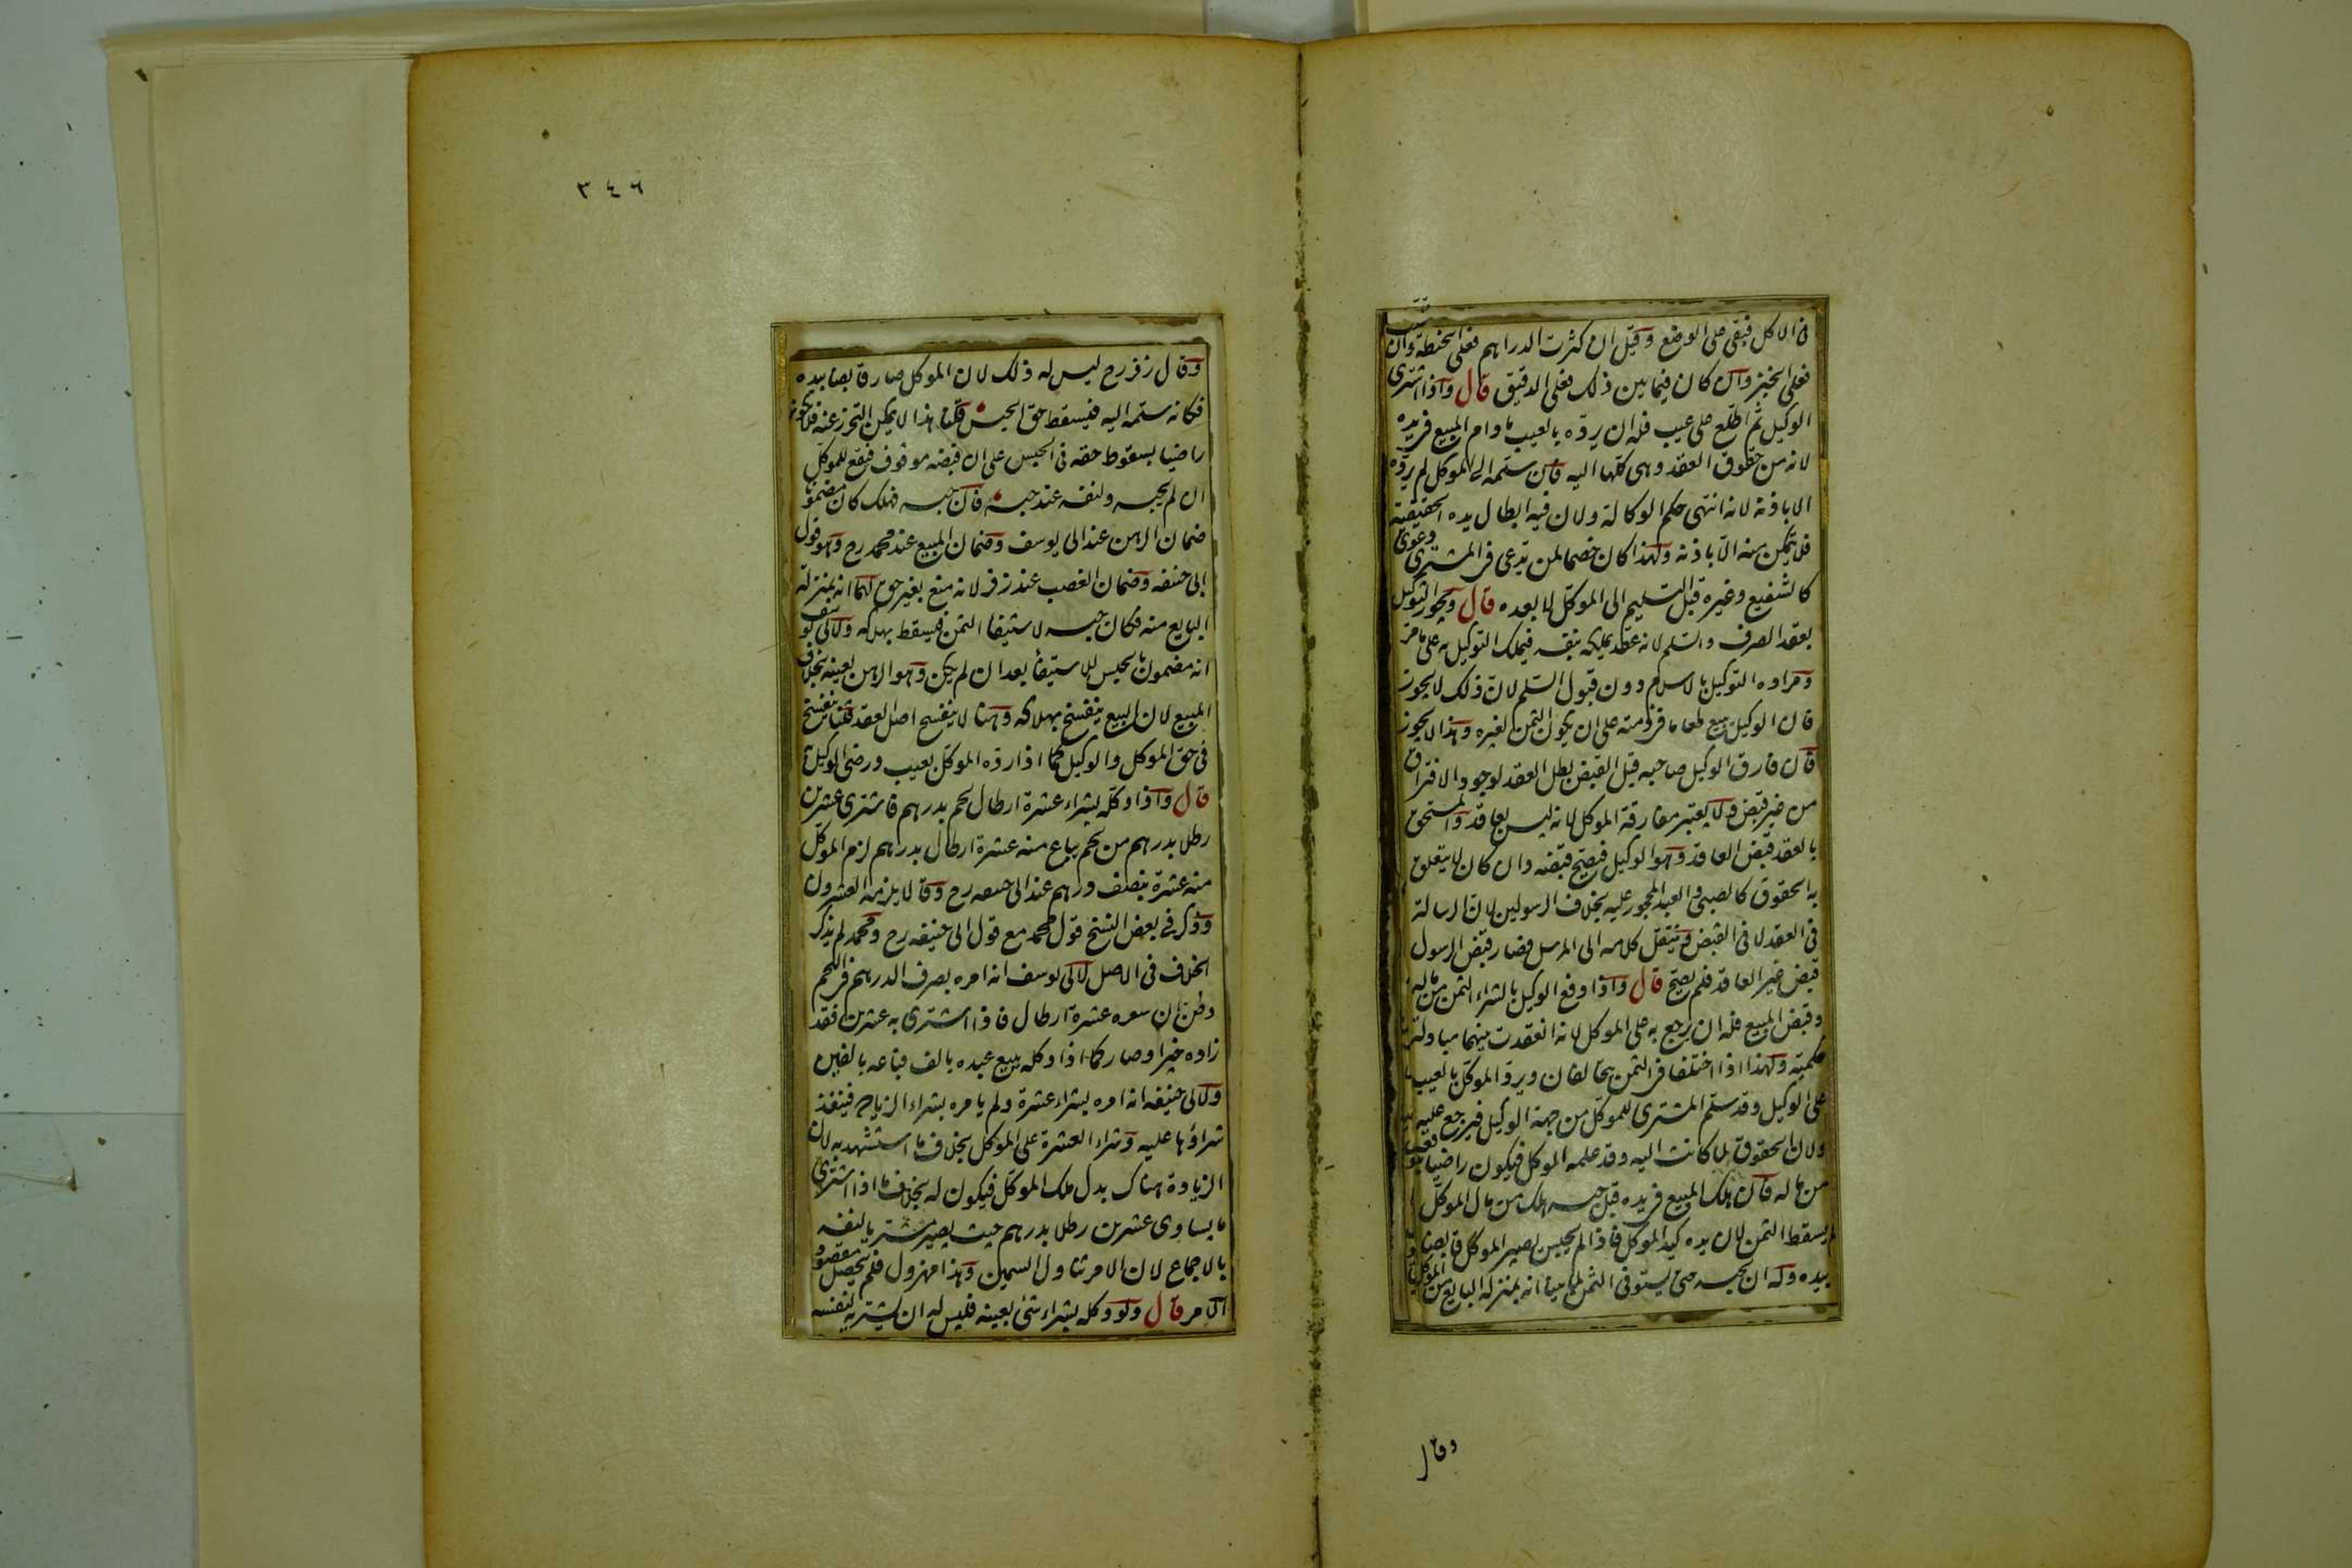 فى الاكل فبقى على الوضع وقيل ان كثرت الدراهم فعلى الحنطة وان قلت
فعلى الخبز وان كان فيما بين ذلك فعلى الدقيق قال واذا اشترى
الوكيل ثم اطلع على عيب فله ان يرده بالعيب ما دام المبيع فى يده
لانه من حقوق العقد وهى كلها اليه فان سلمه الى الموكل لم يرده
الا باذنه لانه انتهى حكم الوكالة ولان فيه ابطال يده الحقيقية
فلا يتمكن منه الا باذنه ولهذا كان خصما لمن يدعى فى المشترى دعوى
كالشفيع وغيره قبل التسليم الى الموكل لا بعده قال ويجوز التوكيل
بعقد الصرف والسلم لانه عقد يملكه بنفسه فيملك التوكيل به على ما مر
ومراده التوكيل بالاسلام دون قبول السلم لان ذلك لا يجوز
فان الوكيل يبيع طعاما فى ذمته على ان يكون الثمن لغيره وهذا لا يجوز
فان فارق الوكيل صاحبه قبل القبض بطل العقد لوجود الافتراق
من غير قبض ولا يعتبر مفارقة الموكل لانه ليس بعاقد والمستحق
بالعقد قبض العاقد وهو الوكيل فيصح قبضه وان كان لا يتعلق
به الحقوق كالصبى والعبد المحجور عليه بخلاف الرسولين لان الرسالة
فى العقد لا فى القبض وينتقل كلامه الى المرسل فصار قبض الرسول
قبض غير العاقد فلم يصح قال واذا دفع الوكيل بالشراء الثمن من ماله
وقبض المبيع فله ان يرجع به على الموكل لانه انعقدت بينهما مبادلة
حكمية ولهذا اذا اختلفا فى الثمن يتحالفان ويرد الموكل بالعيب
على الوكيل وقد سلم المشترى للموكل من جهة الوكيل فيرجع عليه
ولان الحقوق لما كانت اليه وقد علمه الموكل فيكون راضيا بدفعه
من ماله فان هلك المبيع فى يده قبل حبسه هلك من مال الموكل
لم يسقط الثمن لان يده كيد الموكل فاذا لم يحبس يصير الموكل قابضا
بيده وله ان يحبسه حتى يستوفى الثمن لما بينا انه بمنزلة البايع من الموكل
وقال
٣٤٦
وقال زفر رح ليس له ذلك لان الموكل صار قابضا بيده
فكانه سلمه اليه فيسقط حق الحبس قلنا هذا لا يمكن التحرز عنه فلا يكون
راضيا بسقوط حقه فى الحبس على ان قبضه موقوف فيقع للموكل
ان لم يحبسه ولنفسه عند حبسه فان حبسه فهلك كان مضمونا
ضمان الرهن عند ابى يوسف وضمان المبيع عند محمد رح وهو قول
ابى حنيفه وضمان الغصب عند زفر لانه منع بغير حق لهما انه بمنزلة
البايع منه فكان حبسه لاستيفا الثمن فيسقط بهلاكه ولابى يوسف
انه مضمون بالحبس للاستيفأ بعد ان لم يكن وهو الرهن بعينه بخلاف
المبيع لان البيع ينفسخ بهلاكه وهنا لا ينفسخ اصل العقد قلنا ينفسخ
فى حق الموكل والوكيل كما اذا رده الموكل بعيب ورضى الوكيل به
قال واذا وكله بشراء عشرة ارطال لحم بدرهم فاشترى عشرين
رطلا بدرهم من لحم يباع منه عشرة ارطال بدرهم لزم الموكل
منه عشرة بنصف درهم عند ابى حنيفه رح وقالا يلزمه العشرون
وذكر فى بعض النسخ قول محمد مع قول ابى حنيفه رح ومحمد لم يذكر
الخلاف فى الاصل لابى يوسف انه امره بصرف الدرهم فى اللحم
وظن ان سعره عشرة ارطال فاذا اشترى به عشرين فقد
زاده خيرا وصار كما اذا وكله ببيع عبده بالف فباعه بالفين
ولابى حنيفه انه امره بشراء عشرة ولم يامره بشراء الزيادة فينفذ
شراؤها عليه وشراء العشرة على الموكل بخلاف ما استشهد به لان
الزيادة هناك بدل ملك الموكل فيكون له بخلاف ما اذا اشترى
ما يساوى عشرين رطلا بدرهم حيث يصير مشتريا لنفسه
بالاجماع لان الامر تناول السمين وهذا مهزول فلم يحصل مقصود
الامر قال ولو وكله بشراء شئ بعينه فليس له ان يشتريه لنفسه